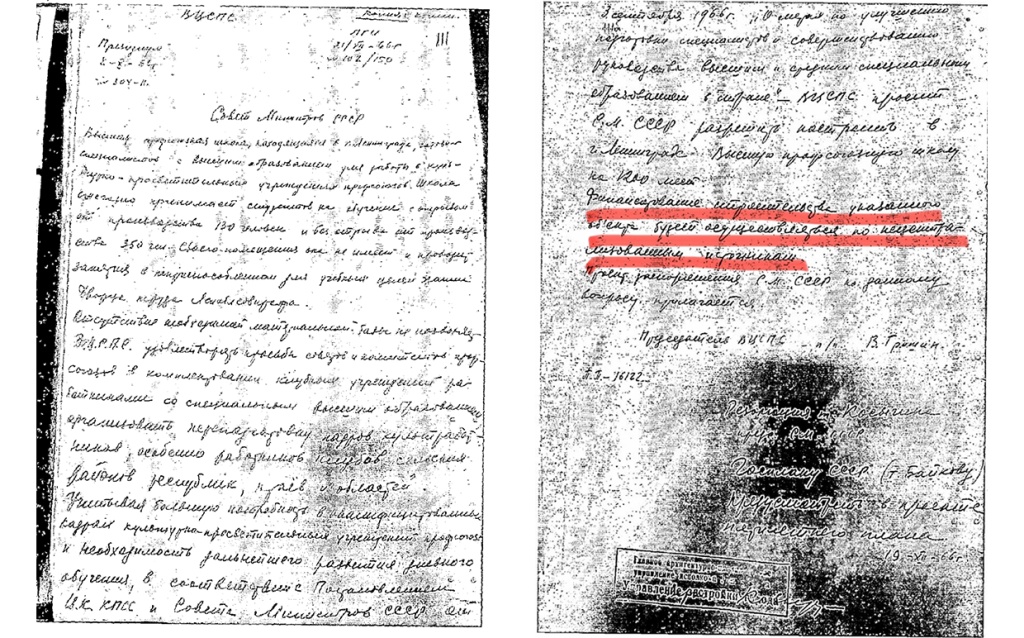 ВЦСПС
Копия копии.
111
Президиум
ЛГИ
№ 102/150
№ 304-П.
Совет Министров СССР
Высшая профсоюзная школа, находящаяся в г. Ленинграде, готовит
специалистов с высшим образованием для работы в куль-
турно-просветительных учреждениях профсоюзов. Школа
ежегодно принимает студентов на обучение с отрывом
от производства 130 человек и без отрыва от производ-
ства 350 чел. Своего помещения она не имеет и проводит
занятия в неприспособленном для учебных целей здании
Дворца труда Ленсовпрофа.
Отсутствие необходимой материальной базы не позволяет
удовлетворять просьбы советов и комитетов проф-
союзов в комплектовании клубных учреждений ра-
ботниками со специальным высшим образованием
организовать переподготовку кадров культработ-
ников, особенно работников клубов сельских
районов республик, краев и областей.
Учитывая большую потребность в квалифицированных
кадрах культурно-просветительных учреждений профсоюзов
и необходимость дальнейшего развития дневного
обучения, в соответствие с Постановлением
ЦК КПСС и Совета Министров СССР от
3 сентября 1966г. "О мерах по улучшению
подготовки специалистов и совершенствованию
руководства высшим и средним специальным
образованием в стране" – ВЦСПС просит
С.М. СССР разрешить построить в
г. Ленинграде Высшую профсоюзную школу
на 1200 мест.
Финансирование строительства указанного
объекта будет осуществляться по нецентра-
лизованным источникам.
Проект распоряжения С.М. СССР по данному
вопросу прилагается.
Председатель ВЦСПС п/п В. Гришин.
16122
Резолюция т. Косыгина
Госплану СССР (т. Байкову)
Предусмотреть в проекте
19-XII-66г.